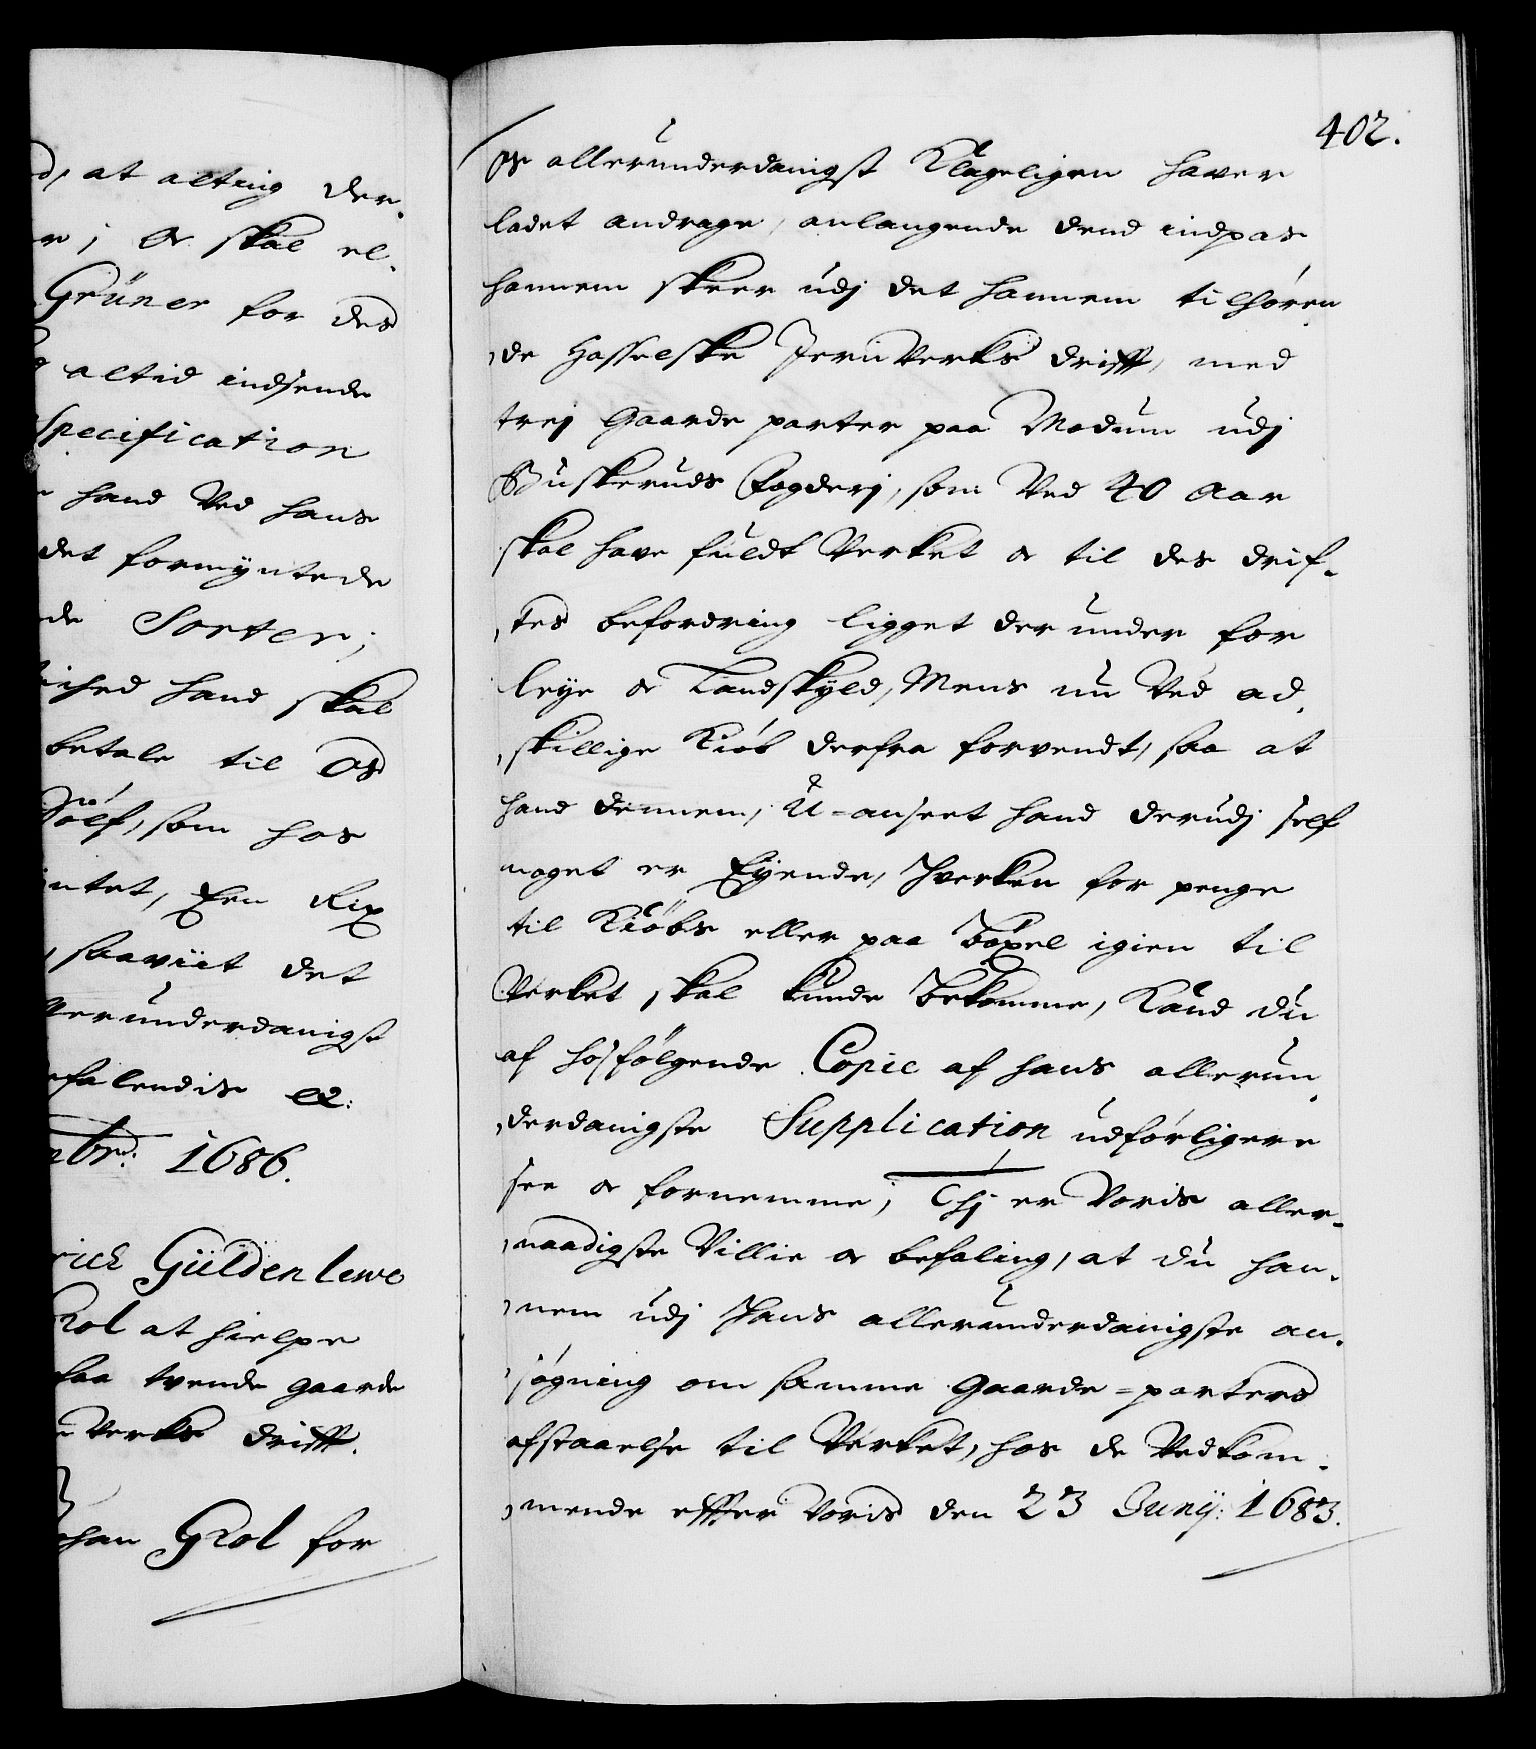 d, at alting der-
r; Og skal el-
Grüner for des
altid indsende
Specification
hand Ved hans
det formyntede
de Sorter;
ished hand skal
betale til Os
Sölf, som hos
ntet, Een Rix
, saaviit det
erunderdanigst
efalendis etc:
br: 1686.
rich Güldenlewe
Krol at hielpe
faa tvende gaarde
Verks drifft.
ohan Krol for
402.
Os allerunderdanigst Klageligen haver
ladet andrage, anlangende dend indpas
hannem skeer udj det hannem tilhören
de Hasselske JernVerks drifft, med
trej Gaarde parter paa Modum udj
Buskeruds Fogderj, som Ved 40 Aar
skal have fuldt Verket og til des drif-
tes befordring ligget derunder for
leye og Landskyld, Mens nu Ved ad-
skillige Kiöb derfra forvendt, saa at
hand dennem, U-anseet hand derudj self
noget er Eyende, hverken for penge
til Kiöbs eller paa Böxel igien til
Verket skal kunde bekomme, Kand du
af hosfölgende Copie af hans allerun
derdanigste Supplication udförligere
see og fornemme; Thj er Voris aller-
naadigste Villie og befaling, at du han-
nem udj hans allerunderdanigste an-
sögning om samme Gaarde-parters
afstaaelse til Verket, hos de Vedkom-
mende effter Voris den 23 Junij: 1683.